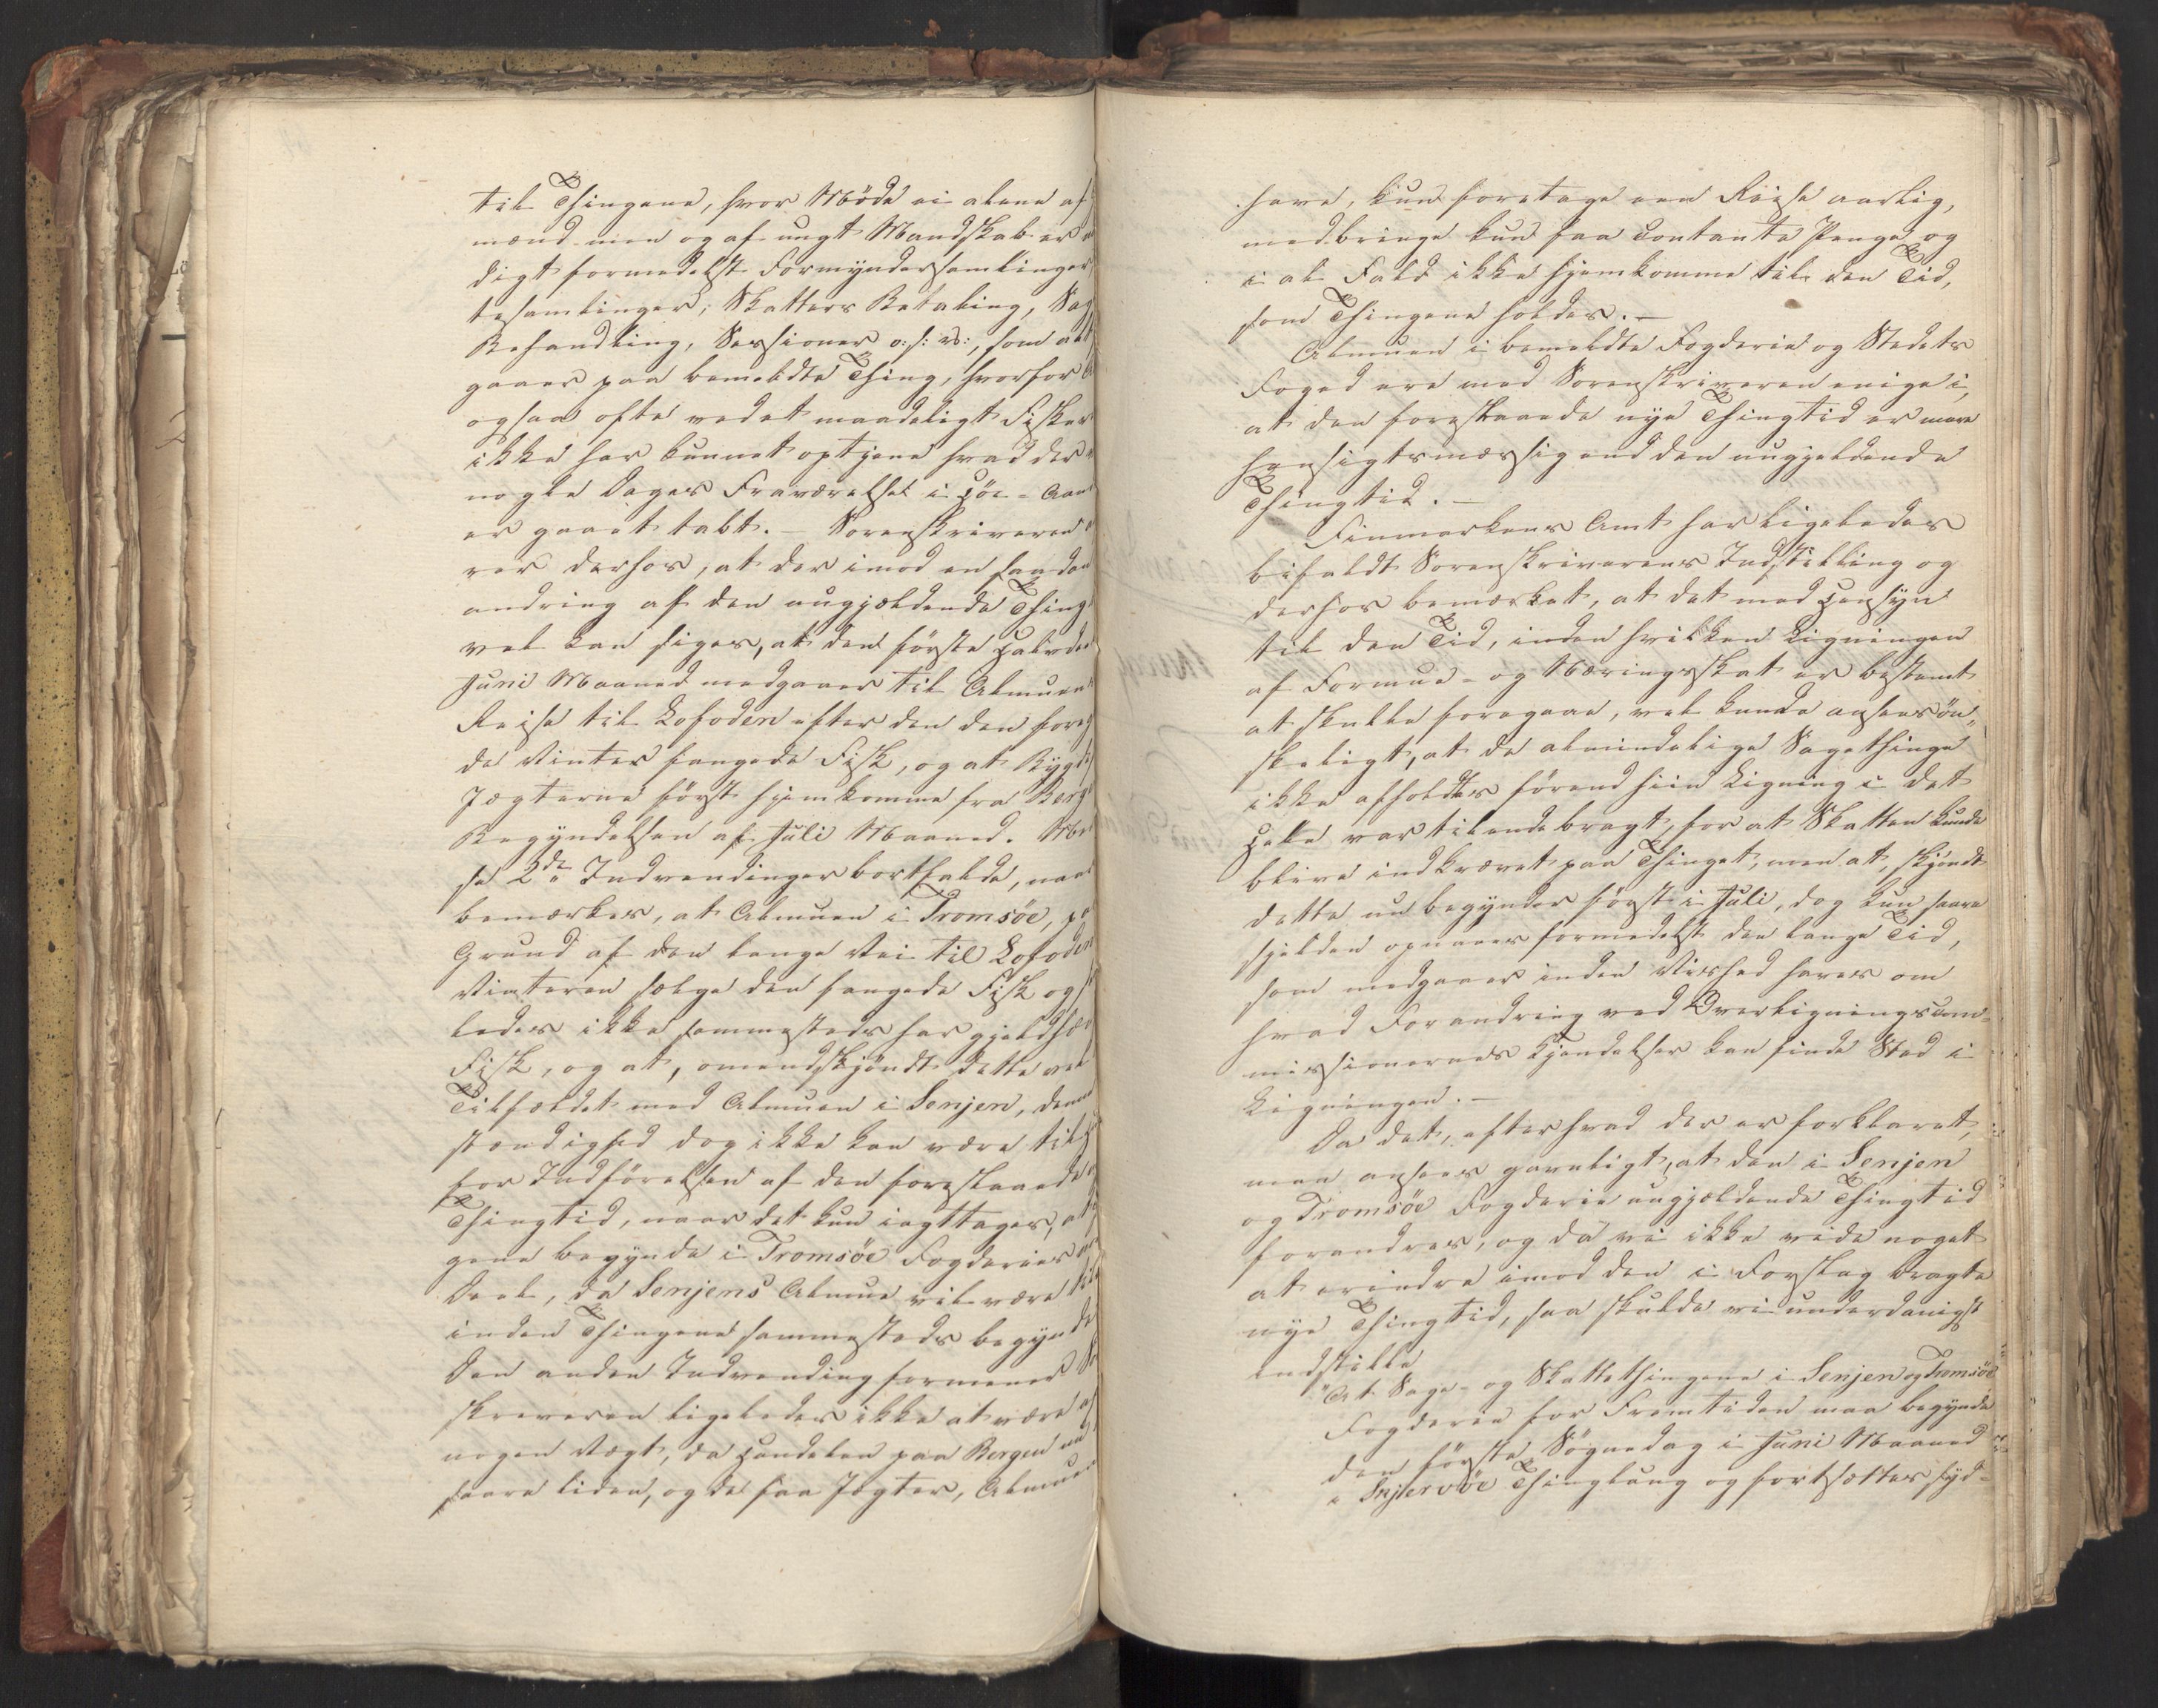 til Thingene, hvor Møde ei alene af
mænd men og af ungt Mandskab er
digt formedelst Formyndersamlinger
tesamlinger, Skatters Betaling, Sag
Behandling, Sessioner o: s: v:, som alt
gaaer paa bemeldte Thing, hvorfor
ogsaa ofte ved et maadeligt Fisker
ikke har kunnet optjene hvad der
nogle Dages Fraværelse i Høe-Aan
er gaaet tabt. – Sorenskriveren
rer derhos, at der imod en saadan
andring af den nugjældende Thing
vel kan siges, at den første Halvdel
Juni Maaned medgaaer til Almuens
Reise til Lofoden efter den den foreg
de Vinter fangede Fisk, og at Bygde
Jægterne først hjemkomme fra Berg
Begyndelsen af Juli Maaned. Me
se 2de Indvendinger bortfalde, naar
bemærkes, at Almuen i Tromsöe, paa
Grund af den lange Vei til Lofoden
Vinteren sælge den fangede Fisk og
ledes ikke sammesteds har gjeldhæ
Fisk, og at, omendskjøndt dette ved
Tilfældet med Almuen i Senjen, denne
stændighed dog ikke kan være til
for Indførelsen af den foreslaaede
Thingtid, naar det kun iagttages, at
gene begynde i Tromsöe Fogderies
Deel, da Senjens Almue vil være
inden Thingene sammesteds begynde
Den anden Indvending formener
skriveren ligeledes ikke at være af
nogen Vægt, da Handelen paa Bergen
saare liden, og de faa Jægter, Almuen
have, kun foretage een Reise aarlig,
medbringe kun faa Contante Penge og
i al Fald ikke hjemkomme til den Tid,
som Thingene holdes. –
Almuen i bemeldte Fogderie og Stedets
Foged ere med Sorenskriveren enige i,
at den foreslaaede nye Thingtid er mere
hensigtsmæssig end den nugjeldende
Thingtid. –
Finmarkens Amt har ligeledes
bifaldt Sorenskriverens Indstilling og
derhos bemærket, at det med Hensyn
til den Tid, inden hvilken Ligningen
af Formue- og Næringsskat er bestemt
at skulle foregaae, vel kunde ansees øn-
skeligt, at de almindelige Sagethinge
ikke afholdtes førend hiin Ligning i det
Hele var tilendebragt, for at Skatten kunde
blive indkrævet paa Thinget, men at, skjøndt
dette nu begynder først i Juli, dog kun saare
sjelden opnaaes formedelst den lange Tid,
som medgaaer inden Vished haves om
hvad Forandring ved Overligningscom-
missionernes Kjendelser kan finde Sted i
Ligningen. –
Da det, efter hvad der er forklaret,
maa ansees gavnligt, at den i Senjen
og Tromsöe Fogderie nugjældende Thingtid
forandres, og da vi ikke vide noget
at erindre imod den i Forslag bragte
nye Thingtid, saa skulde vi underdanigst
indstille
"At Sage- og Skattethingene i Senjen og Tromsöe
Fogderie for Fremtiden maa begynde
den første Søgnedag i Juni Maaned
i Skjervöe Thinglaug og fortsættes syd-